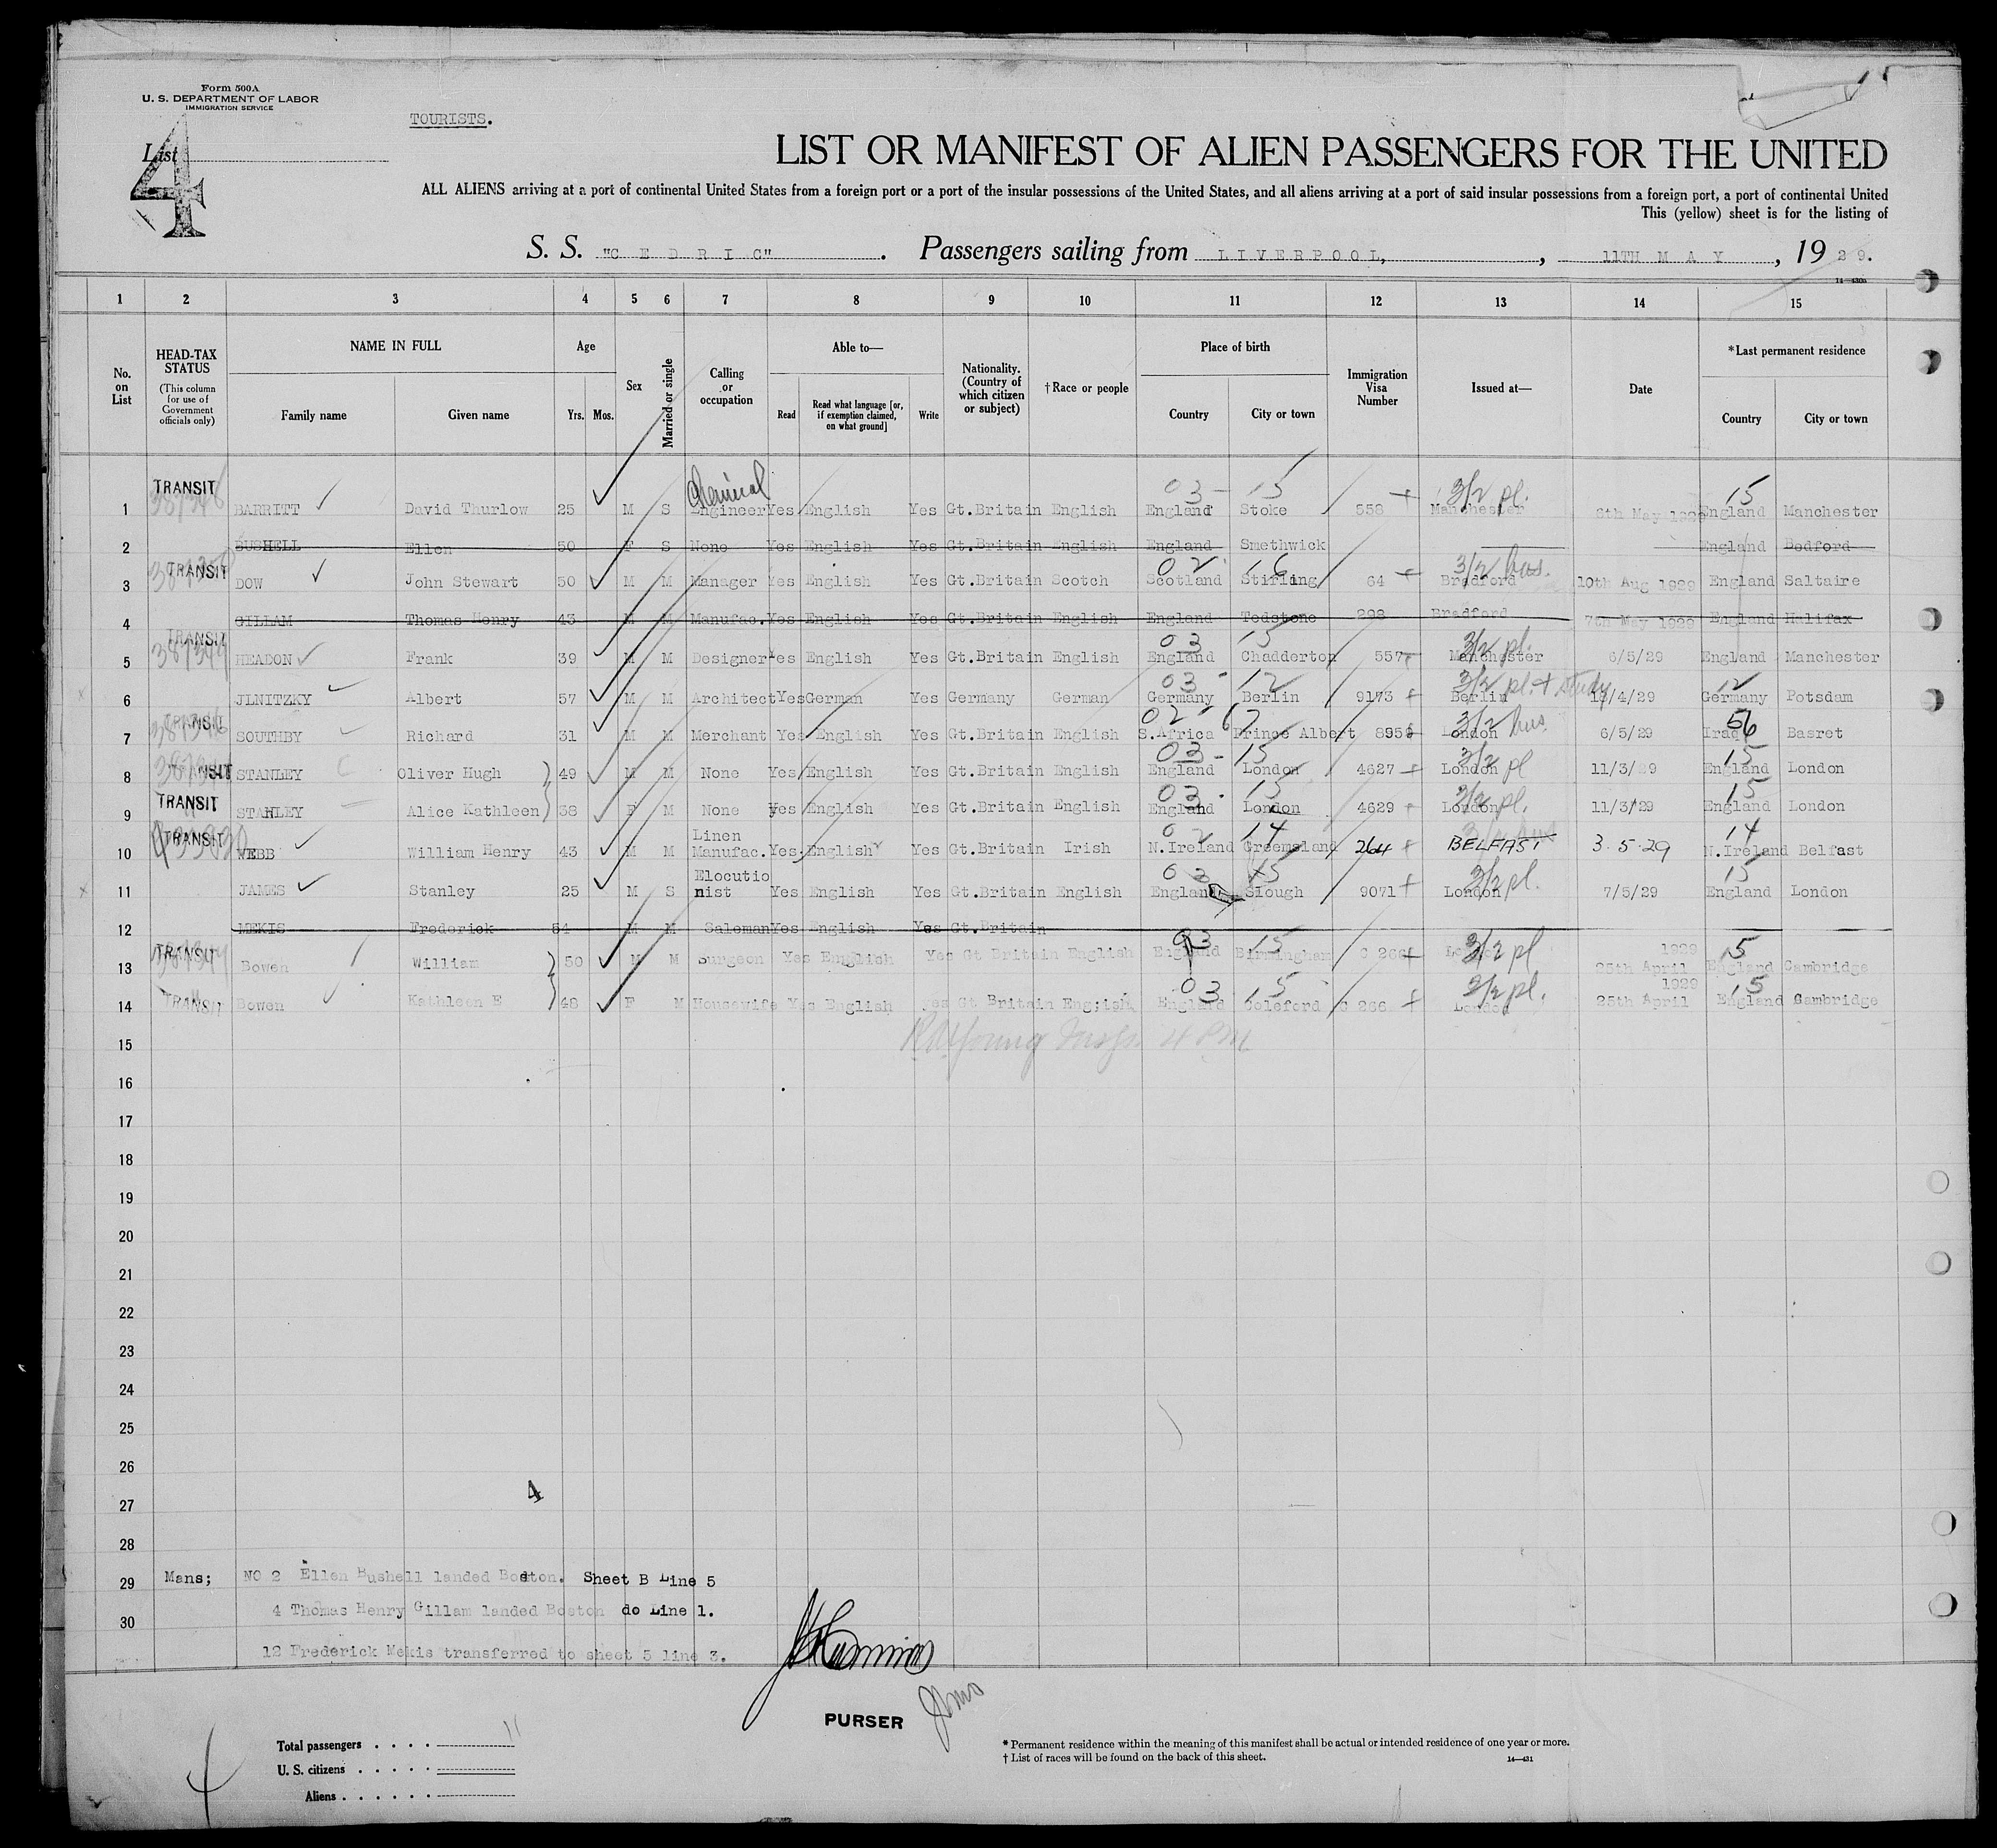 Form 500A
U. S. DEPARTMENT OF LABOR
IMMIGRATION SERVICE
TOURISTS.
List
4
LIST OR MANIFEST OF ALIEN PASSENGERS FOR THE UNITED
ALL ALIENS arriving at a port of continental United States from a foreign port or a port of the insular possessions of the United States, and all aliens arriving at a port of said insular possessions from a foreign port, a port of continental United
This (yellow) sheet is for the listing of
S. S. "C E D R I C". Passengers sailing from LIVERPOOL, , 11TH M A Y , 19 2 9.
1 2 3 4 5 6 7 8 9 10 11 12 13 14 15
No. on List
HEAD-TAX STATUS
(This column for use of Government officials only)
NAME IN FULL
Family name Given name
Age
Yrs. Mos.
Sex
Married or single
Calling or occupation
Able to—
Read Read what language [or, if exemption claimed, on what ground] Write
Nationality. (Country of which citizen or subject)
†Race or people
Place of birth
Country City or town
Immigration Visa Number
Issued at—
Date
*Last permanent residence
Country City or town
Chemical 03 - 15 3/2 pl. 15
1 TRANSIT BARRITT David Thurlow 25 M S Engineer Yes English Yes Gt.Britain English England Stoke 558 Manchester 8th May 1929 England Manchester
2 BUSHELL Ellen 50 F S None Yes English Yes Gt.Britain English England Smethwick England Bedford
02 16 3/2 bus.
3 TRANSIT DOW John Stewart 50 M M Manager Yes English Yes Gt.Britain Scotch Scotland Stirling 64 Bradford 10th Aug 1929 England Saltaire
4 GILLAM Thomas Henry 43 M M Manufac. Yes English Yes Gt.Britain English England Tedstone 298 Bradford 7th May 1929 England Halifax
03 15 3/2 pl.
5 TRANSIT HEADON Frank 39 M M Designer Yes English Yes Gt.Britain English England Chadderton 557 Manchester 6/5/29 England Manchester
03 - 12 3/2 pl. + study 12
6 JLNITZKY Albert 57 M M Architect Yes German Yes Germany German Germany Berlin 9173 Berlin /4/29 Germany Potsdam
02 - 67 3/2 bus. 56
7 TRANSIT SOUTHBY Richard 31 M M Merchant Yes English Yes Gt.Britain English S.Africa Prince Albert 895 London 6/5/29 Iraq Basret
03 - 15 3/2 pl 15
8 TRANSIT STANLEY Oliver Hugh 49 M M None Yes English Yes Gt.Britain English England London 4627 London 11/3/29 England London
03 . 15 3/2 pl. 15
9 TRANSIT STANLEY Alice Kathleen 38 F M None Yes English Yes Gt.Britain English England London 4629 London 11/3/29 England London
02 14 14
10 TRANSIT WEBB William Henry 43 M M Linen Manufac. Yes English Yes Gt.Britain Irish N.Ireland Greemsland 264 BELFAST 3.5.29 N.Ireland Belfast
03 15 3/2 pl. 15
11 JAMES Stanley 25 M S Elocutionist Yes English Yes Gt.Britain English England Slough 9071 London 7/5/29 England London
12 MEKIS Frederick 54 M M Saleman Yes English Yes Gt.Britain
03 15 3/2 pl 15
13 TRANSIT Bowen William 50 M M Surgeon Yes English Yes Gt Britain English England Birmingham C 266 25th April 1929 England Cambridge
03 . 15 3/2 pl. 15
14 TRANSIT Bowen Kathleen E 48 F M Housewife Yes English yes Gt Britain Eng;ish England Coleford C 266 London 25th April 1929 England Cambridge
15
16
17
18
19
20
21
22
23
24
25
26
27
4
28
29 Mans; NO 2 Ellen Bushell landed Boston. Sheet B Line 5
30 4 Thomas Henry Gillam landed Boston do Line 1.
12 Frederick Mekis transferred to sheet 5 line 3.
PURSER
Total passengers . . . . 11
U. S. citizens . . . . .
Aliens . . . . . .
* Permanent residence within the meaning of this manifest shall be actual or intended residence of one year or more.
† List of races will be found on the back of this sheet. 14—431